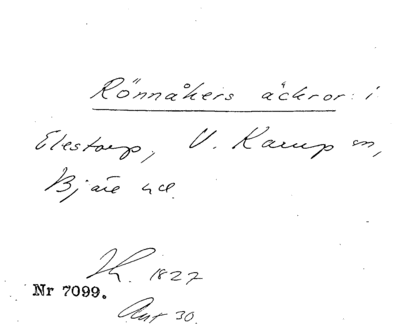 Rönnåkers äckror: i
Elestorp, V. Karup sn,
Bjäre hd.
1827
Nr 7099.
Ant 30.